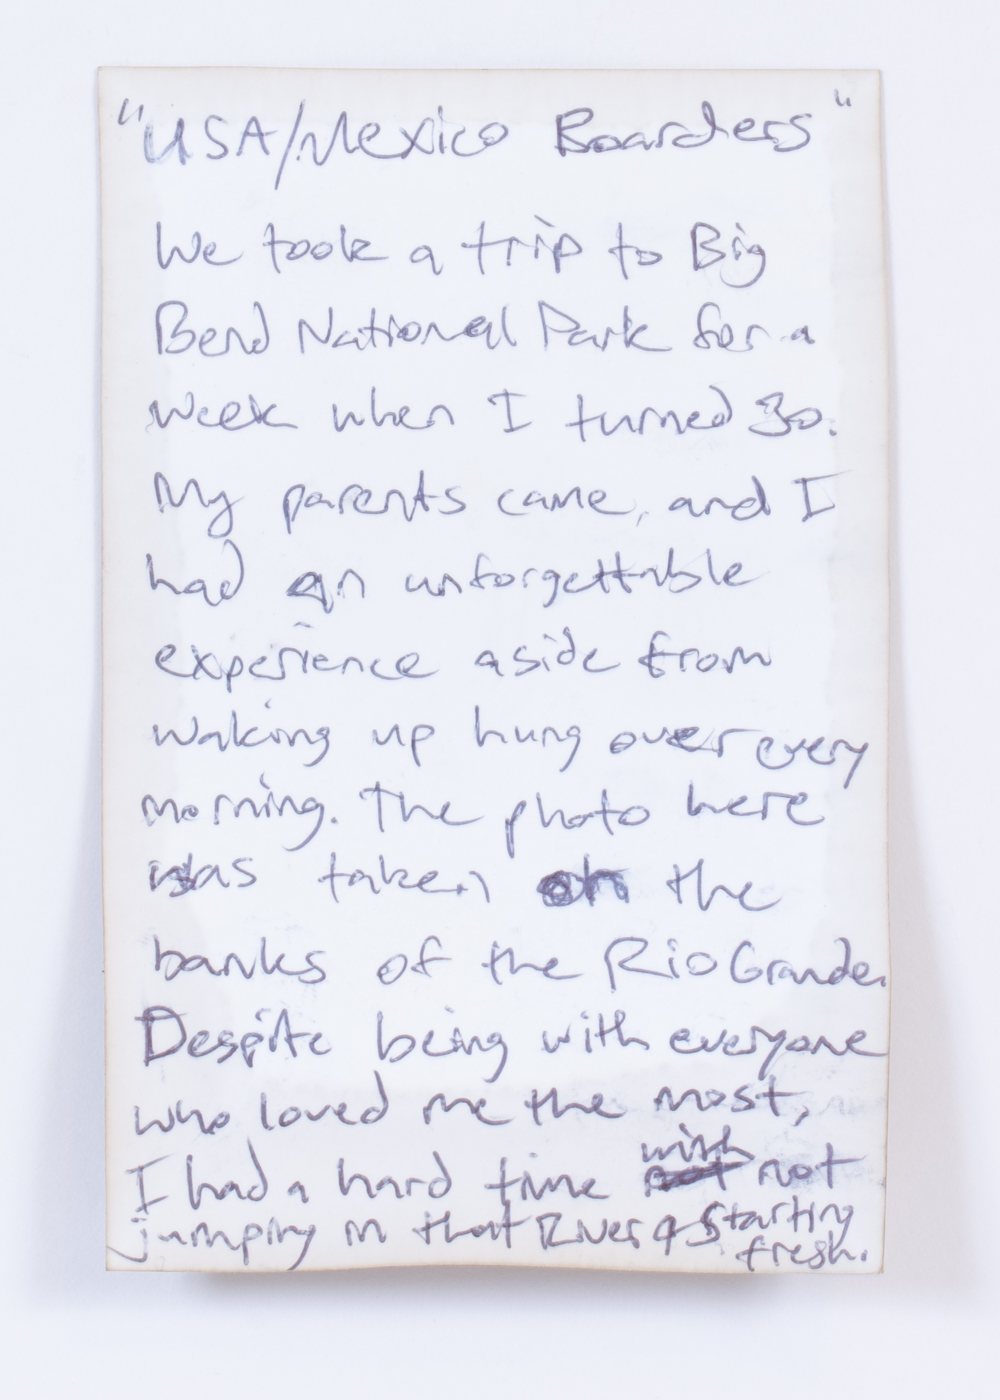 "USA/Mexico Boarders"
We took a trip to Big
Bend National Park for a
week when I turned 30.
My parents came, and I
had an unforgettable
experience aside from
waking up hung over every
morning. The photo here
was taken on the
banks of the Rio Grande.
Despite being with everyone
who loved me the most,
I had a hard time with not
jumping in that River & starting
fresh.